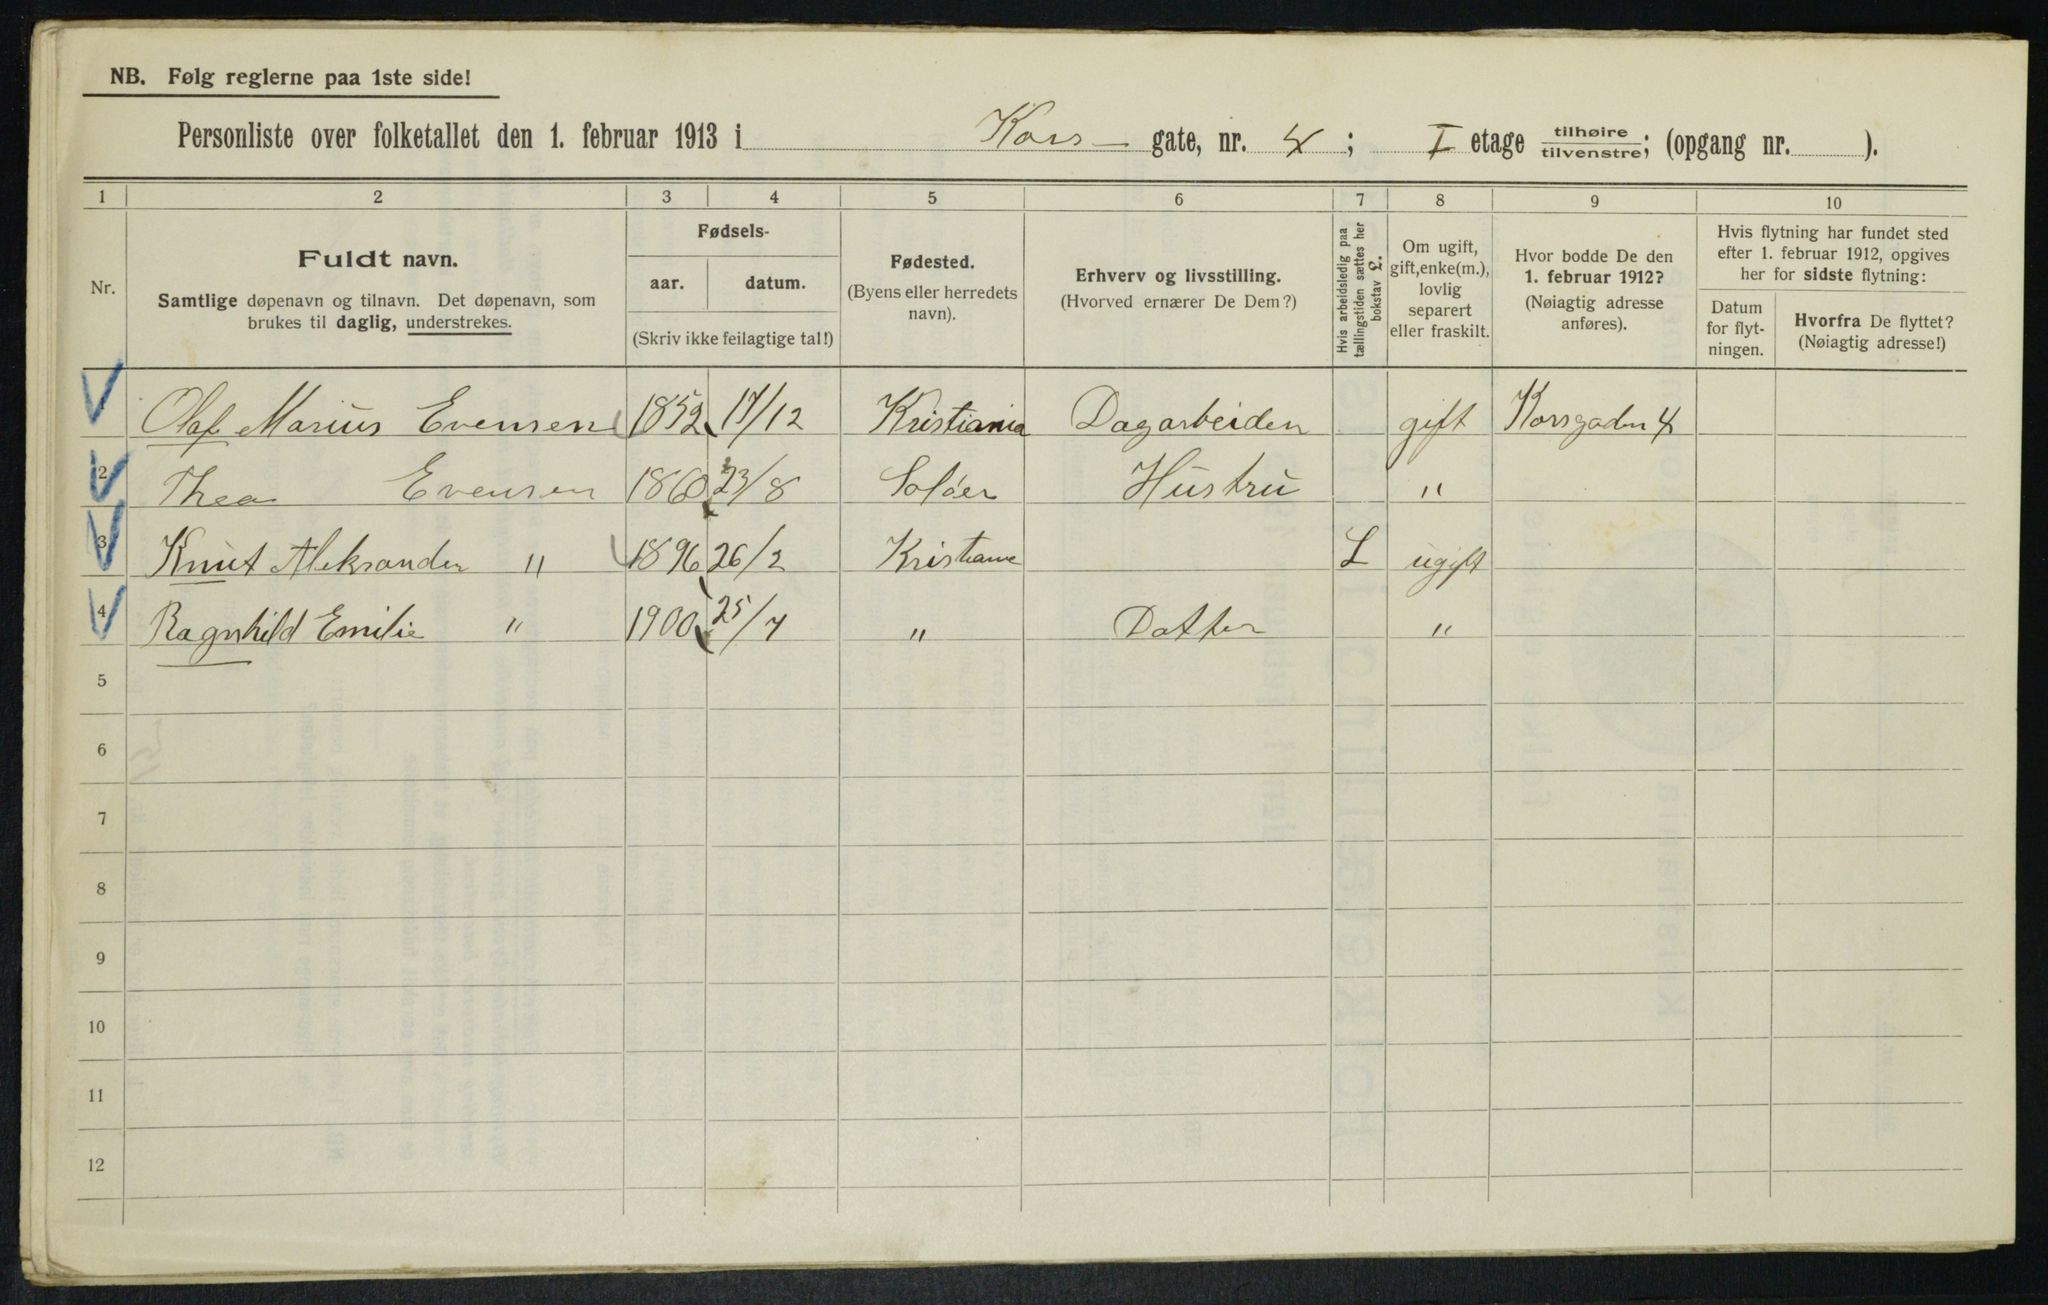 NB. Følg reglerne paa 1ste side!
Personliste over folketallet den 1. februar 1913 i Kors gate, nr. 4; I etage tilhøire/tilvenstre; (opgang nr. ).
1 2 3 4 5 6 7 8 9 10
Nr.
Fuldt navn.
Samtlige døpenavn og tilnavn. Det døpenavn, som
brukes til daglig, understrekes.
Fødsels-
aar. datum.
(Skriv ikke feilagtige tal!)
Fødested.
(Byens eller herredets
navn).
Erhverv og livsstilling.
(Hvorved ernærer De Dem?)
Hvis arbeidsledig paa
tællingstiden sættes her
bokstav L.
Om ugift,
gift, enke(m.),
lovlig
separert
eller fraskilt.
Hvor bodde De den
1. februar 1912?
(Nøiagtig adresse
anføres).
Hvis flytning har fundet sted
efter 1. februar 1912, opgives
her for sidste flytning:
Datum
for flyt-
ningen.
Hvorfra De flyttet?
(Nøiagtig adresse!)
Olaf Marius Evensen 1852 17/12 Kristiania Dagarbeider gift Korsgaden 4
2 Thea Evensen 1860 23/8 Soløer Hustru "
3 Knut Aleksander " 1896 26/2 Kristiania L ugift
4 Ragnhild Emilie " 1900 25/7 " Datter "
5
6
7
8
9
10
11
12